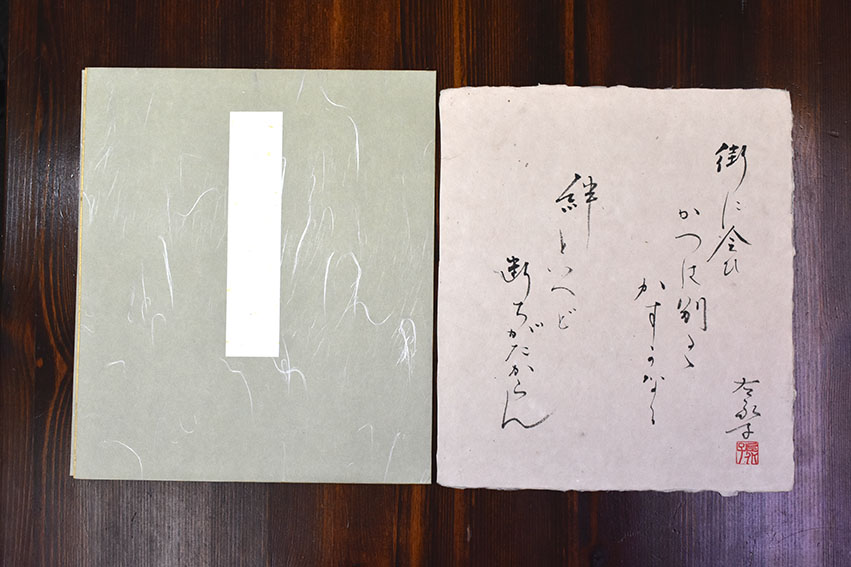 街に会ひ
かつは別るゝ
かすかなる
絆といへど
断ちがたからん
左永子